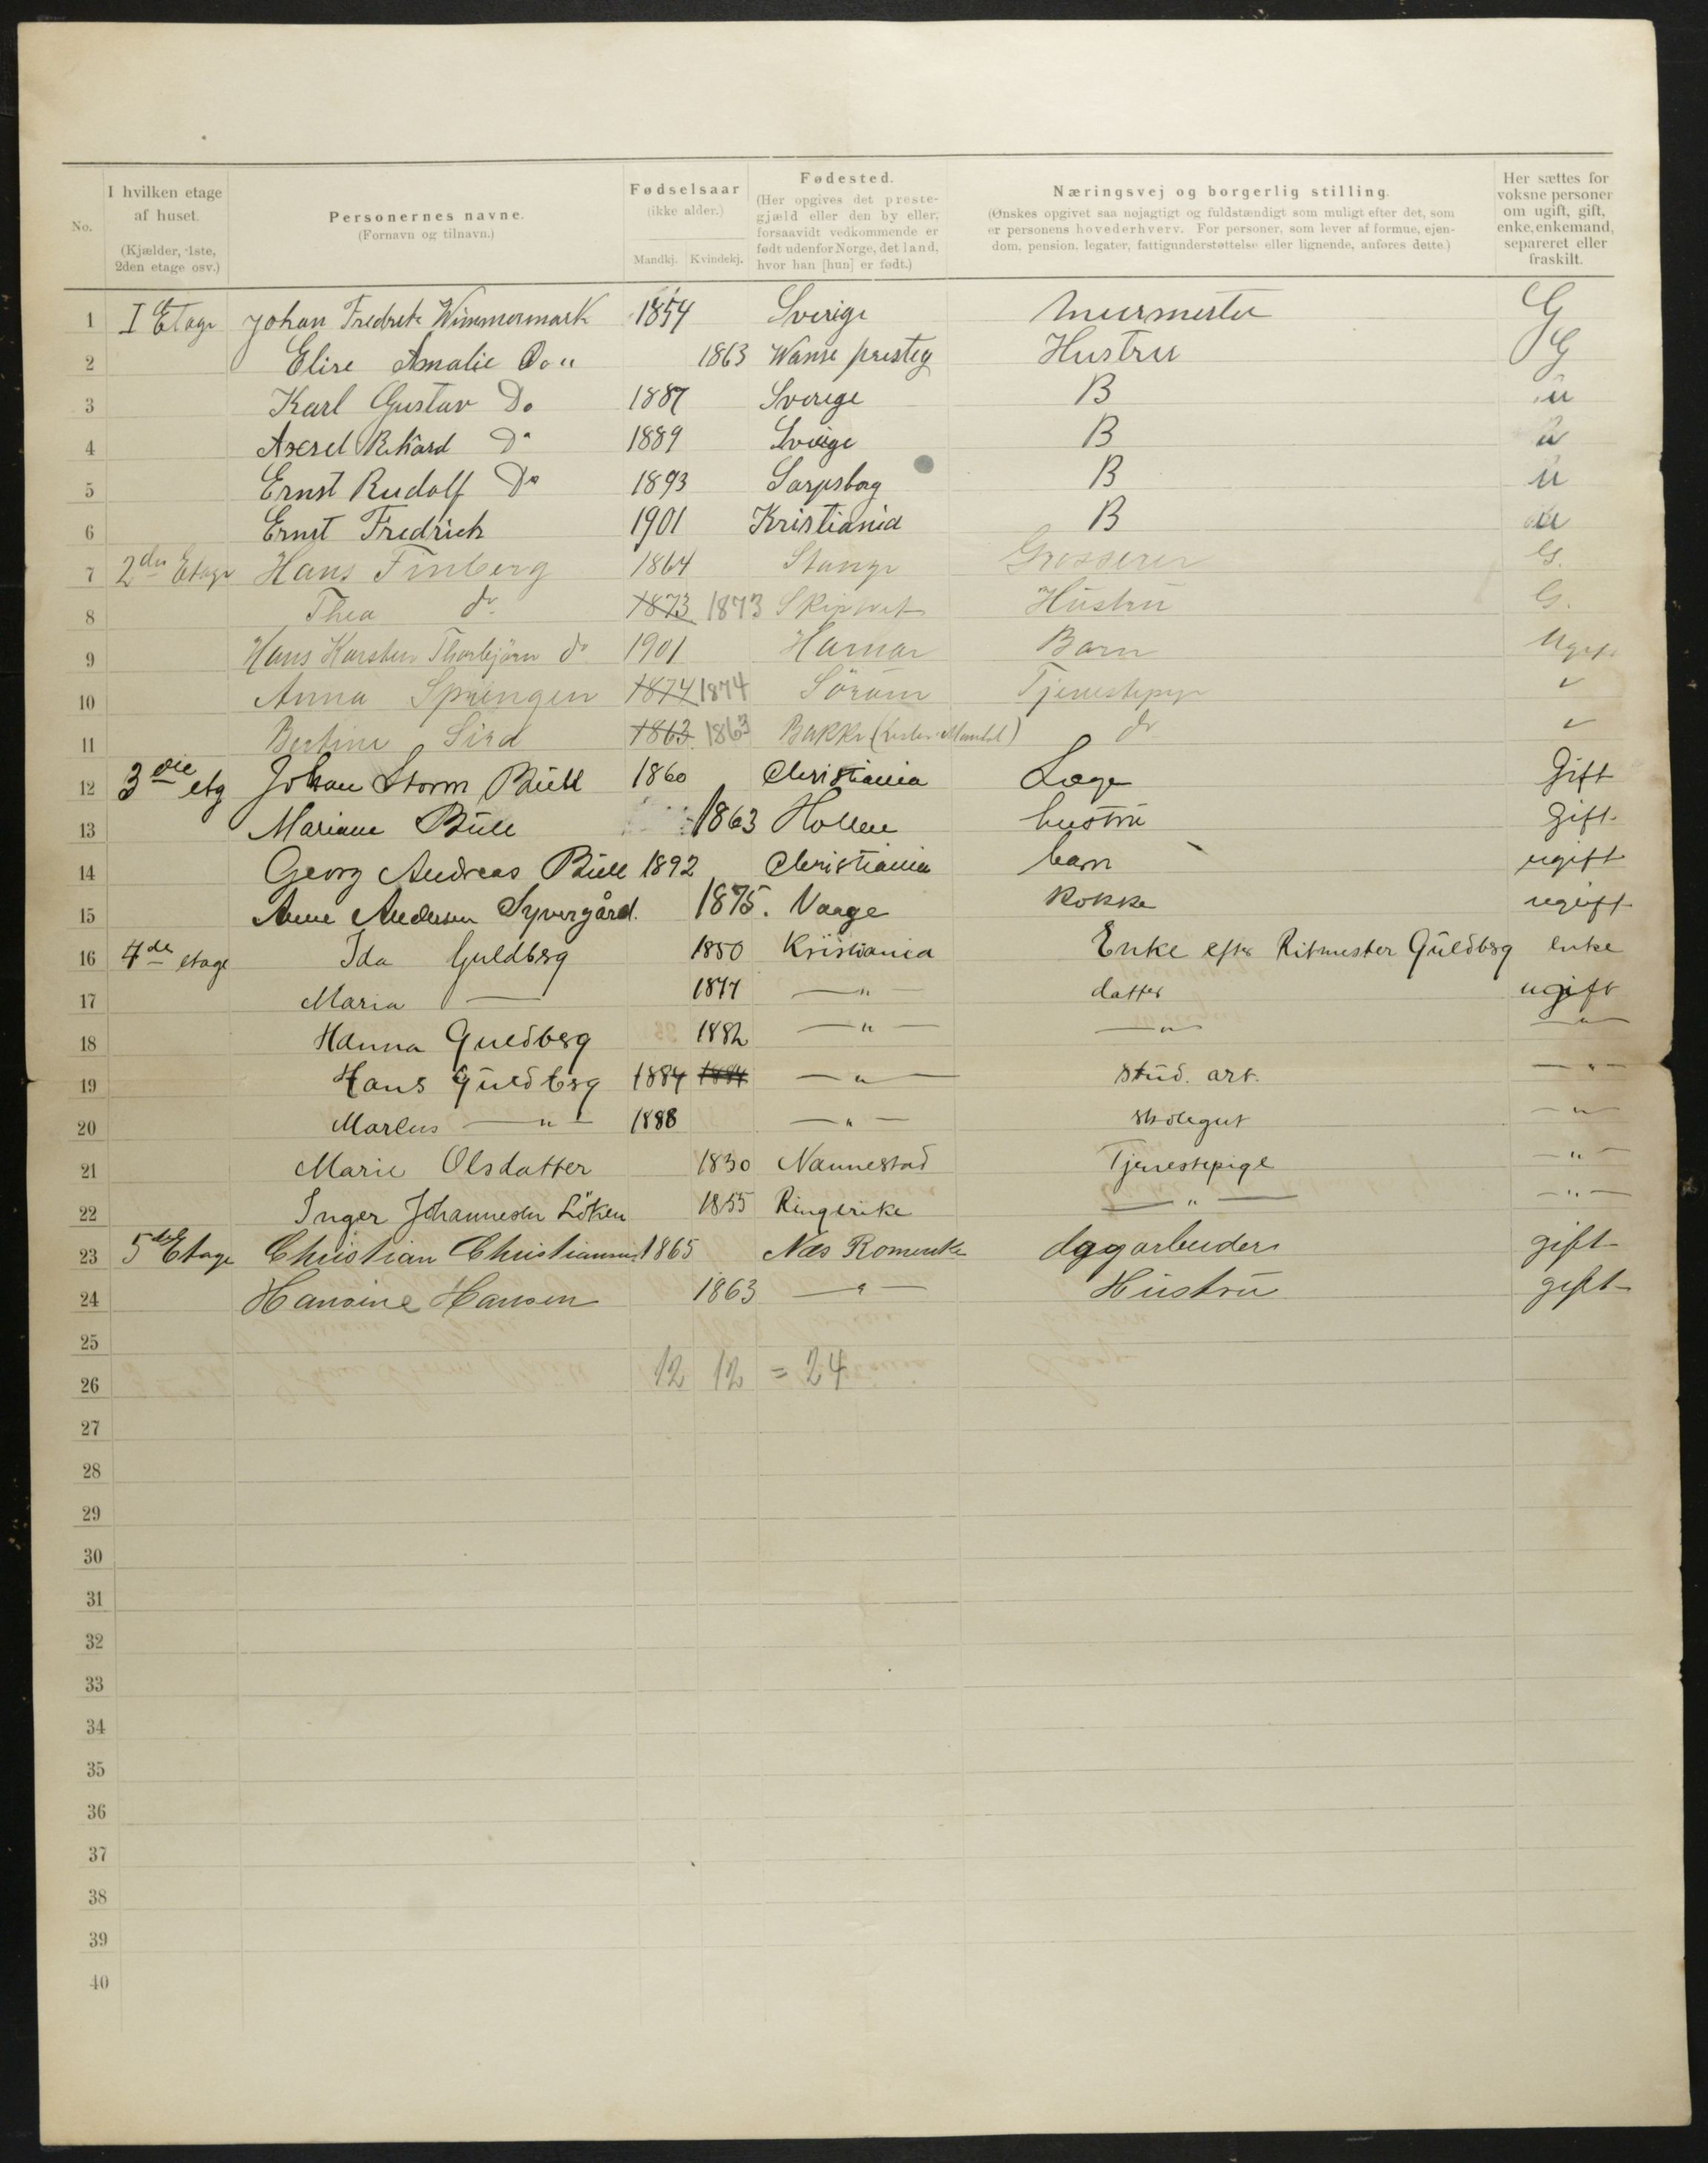 No.
I hvilken etage af huset. (Kjælder, 1ste, 2den etage osv.)
Personernes navne. (Fornavn og tilnavn.)
Fødselsaar (ikke alder.) Mandkj. Kvindekj.
Fødested. (Her opgives det prestegjæld eller den by eller, forsaavidt vedkommende er født udenfor Norge, det land, hvor han [hun] er født.)
Næringsvej og borgerlig stilling. (Ønskes opgivet saa nøjagtigt og fuldstændigt som muligt efter det, som er personens hovederhverv. For personer, som lever af formue, ejendom, pension, legater, fattigunderstøttelse eller lignende, anføres dette.)
Her sættes for voksne personer om ugift, gift, enke, enkemand, separeret eller fraskilt.
1 I Etage Johan Fredrik Wimmermark 1854 Sverige Murmester G
2 Elise Amalie Do 1863 Wanse presteg Hustru G
3 Karl Gustav Do 1887 Sverige B u
4 Axel Rikard Do 1889 Sverige B u
5 Ernst Rudolf Do 1893 Sarpsborg B u
6 Ernst Fredrick 1901 Kristiania B u
7 2den Etage Hans Finberg 1864 Stange Grosserer G.
8 Thea do 1873 1873 Skiptvet Hustru G.
9 Hans Karsten Thorbjørn do 1901 Hamar Barn Ugift
10 Anna Springen 1874 1874 Sörum Tjenestepige
11 Bertine Sird 1863 1863 Bakke ( Mandal) do
12 3die etg Johan Storm Bull 1860 Christiania Læge Gift
13 Mariane Bull 1863 Hollen hustru gift
14 Georg Andreas Bull 1892 Christiania barn ugift
15 Anne Andersen Syvergård. 1875. Vaage Kokke ugift
16 4de etage Ida Guldberg 1850 Kristiania Enke efter Ritmester Guldberg enke
17 Maria — 1877 — " — datter ugift
18 Hanna Guldberg 1882 — " — — " — — " —
19 Hans Guldberg 1884 1884 — " — stud. art. — " —
20 Marius — " — 1888 — " — skolegut — " —
21 Marie Olsdatter 1830 Nannestad Tjenestepige — " —
22 Inger Johannesen Löken 1855 Ringerike — " — — " —
23 5de Etage Christian Christiansen 1865 Næs Romerike dagarbeider gift
24 Hansine Hansen 1863 — " — Hustru gift
25
26 12 12 = 24
27
28
29
30
31
32
33
34
35
36
37
38
39
40